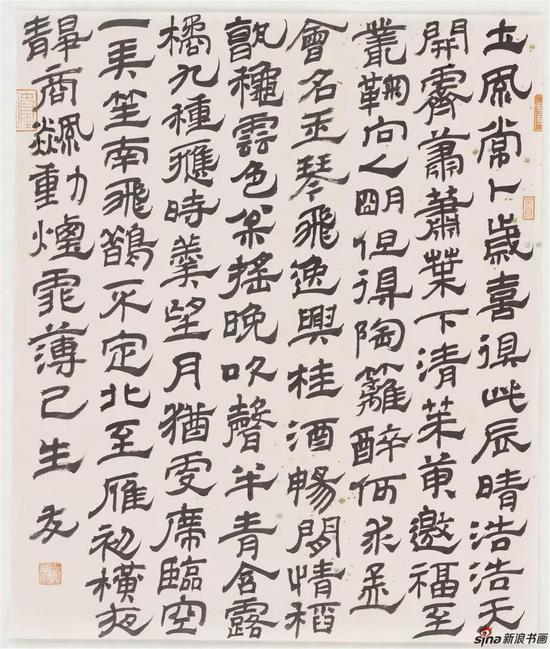 土風常卜歲喜得此辰晴浩浩天
開霽蕭蕭葉下清茱萸邀福至
叢鞠向人明但得陶籬醉何求孟
會名玉琴飛逸興桂酒暢閒情稻
孰穐雲色搖晚吹聲半青含露
橘九種應時羹望月猶席臨空
一奏笙南飛鵲不定北至雁初橫夜
靜商飈動煙霏薄已生 友
sina 新浪书画